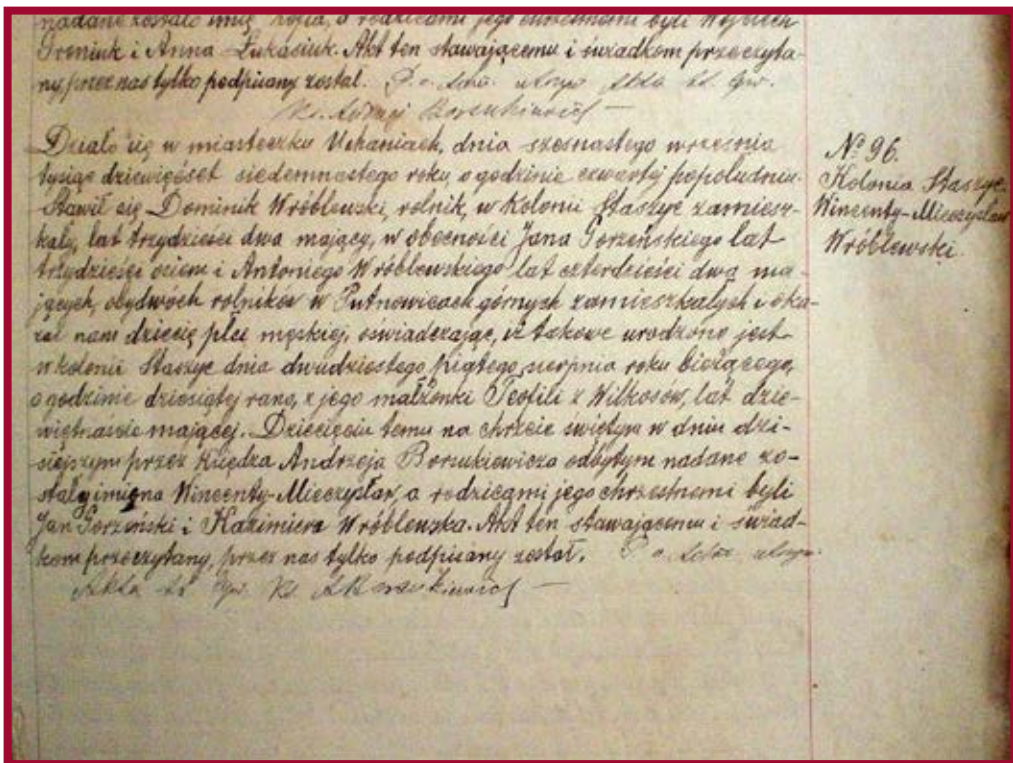 nadane zostało imię Zofja, a rodzicami jego chrzestnemi byli Wojciech
Troniuk i Anna Łukasiuk. Akt ten stawającemu i świadkom przeczyta-
ny przez nas tylko podpisany został.
Ks. Andrzej Borsukiewicz
Działo się w miasteczku Uchaniach, dnia szesnastego września
tysiąc dziewięćset siedemnastego roku, o godzinie czwartej popołudniu.
Stawił się Dominik Wróblewski, rolnik, w Kolonii Staszyc zamiesz-
kały, lat trzydzieści dwa mający, w obecności Jana Gorzeńskiego lat
trzydzieści osiem i Antoniego Wróblewskiego lat czterdzieści dwa ma-
jących, obydwóch rolników w Putnowicach górnych zamieszkałych i oka-
zał nam dziecię płci męskiej, oświadczając, iż takowe urodzone jest
w kolonii Staszyc dnia dwudziestego piątego sierpnia roku bieżącego,
o godzinie dziesiątej rano, z jego małżonki Teofili z Wilkosów, lat dzie-
więtnaście mającej. Dziecięciu temu na chrzcie świętym w dniu dzi-
siejszym przez księdza Andrzeja Borsukiewicza odbytym nadane zo-
stały imiona Wincenty-Mieczysław, a rodzicami jego chrzestnemi byli
Jan Gorzeński i Kazimiera Wróblewska. Akt ten stawającemu i świad-
kom przeczytany, przez nas tylko podpisany został.
Akta st. cyw. Ks. A. Borsukiewicz
№ 96.
Kolonia Staszyc.
Wincenty-Mieczysław
Wróblewski.